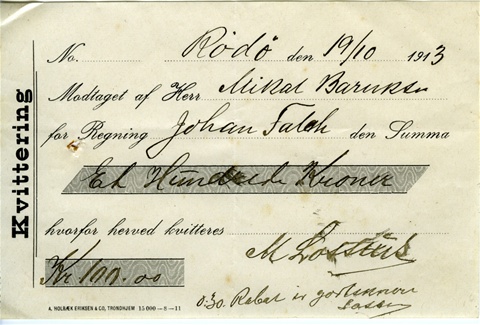 Kvittering
No. Rödö den 19/10 1913
Modtaget af Herr Mikal
for Regning Johan Falch den Summa
Et Hundrede Kroner
hvorfor herved kvitteres
M Lossius
Kr. 100.00
0.30. Rabat er
A. HOLBÆK ERIKSEN & CO., TRONDHJEM 15 000-8-11